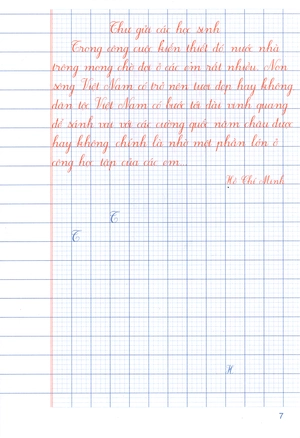 Thư gửi các học sinh
Trong công cuộc kiến thiết đó nước nhà
trông mong chờ đợi ở các em rất nhiều. Non
sông Việt Nam có trở nên tươi đẹp hay không,
dân tộc Việt Nam có bước tới đài vinh quang
để sánh vai với các cường quốc năm châu được
hay không chính là nhờ một phần lớn ở
công học tập của các em...
Hồ Chí Minh
T
T
H
7